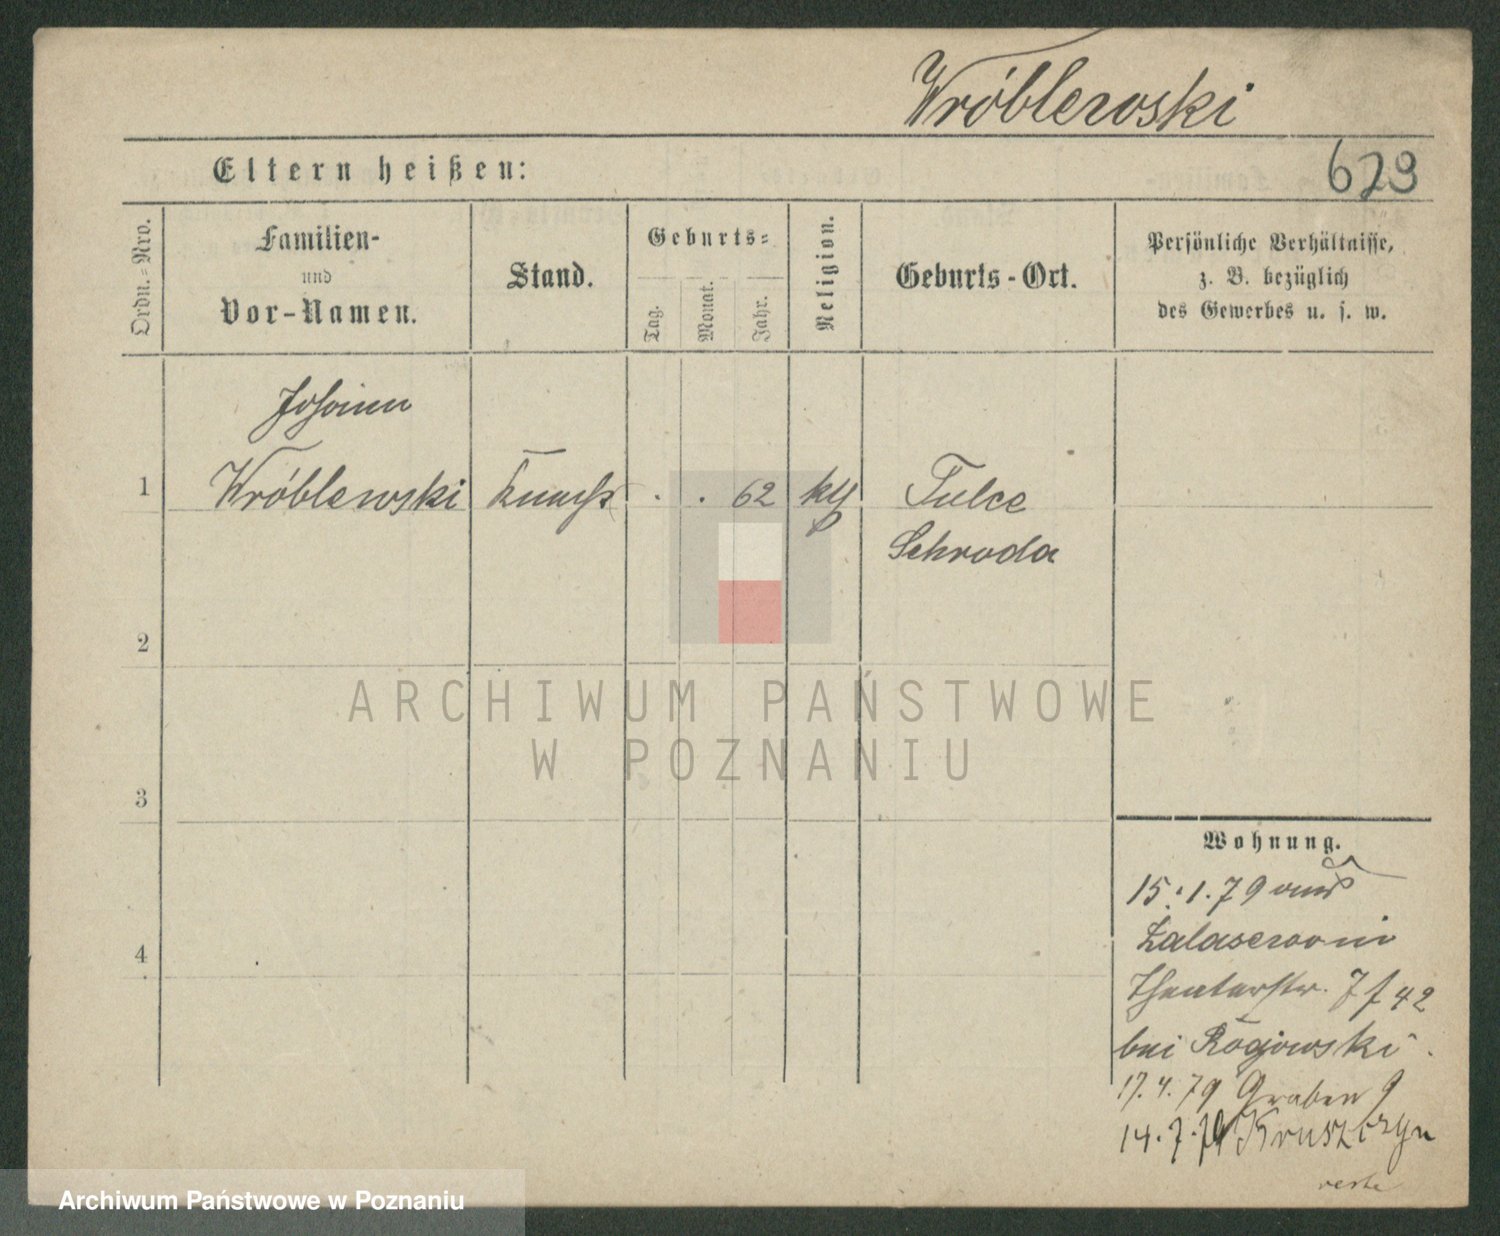 Wróblewski
Eltern heißen:
623
Ordn.=Nro.
Familien-
und
Vor-Namen.
Stand.
Geburts=
Tag.
Monat.
Jahr.
Religion.
Geburts-Ort.
Persönliche Verhältnisse,
z. B. bezüglich
des Gewerbes u. s. w.
Johann
1 Wróblewski Knecht . . 62 kth Tulce
Schroda
2
ARCHIWUM PAŃSTWOWE
W POZNANIU
3
Wohnung.
15.1.79 aus
4
Theaterstr. 7 f 42
bei Rogowski
17.4.79 Graben 9
14.7.79 Kruszczyn
Archiwum Państwowe w Poznaniu